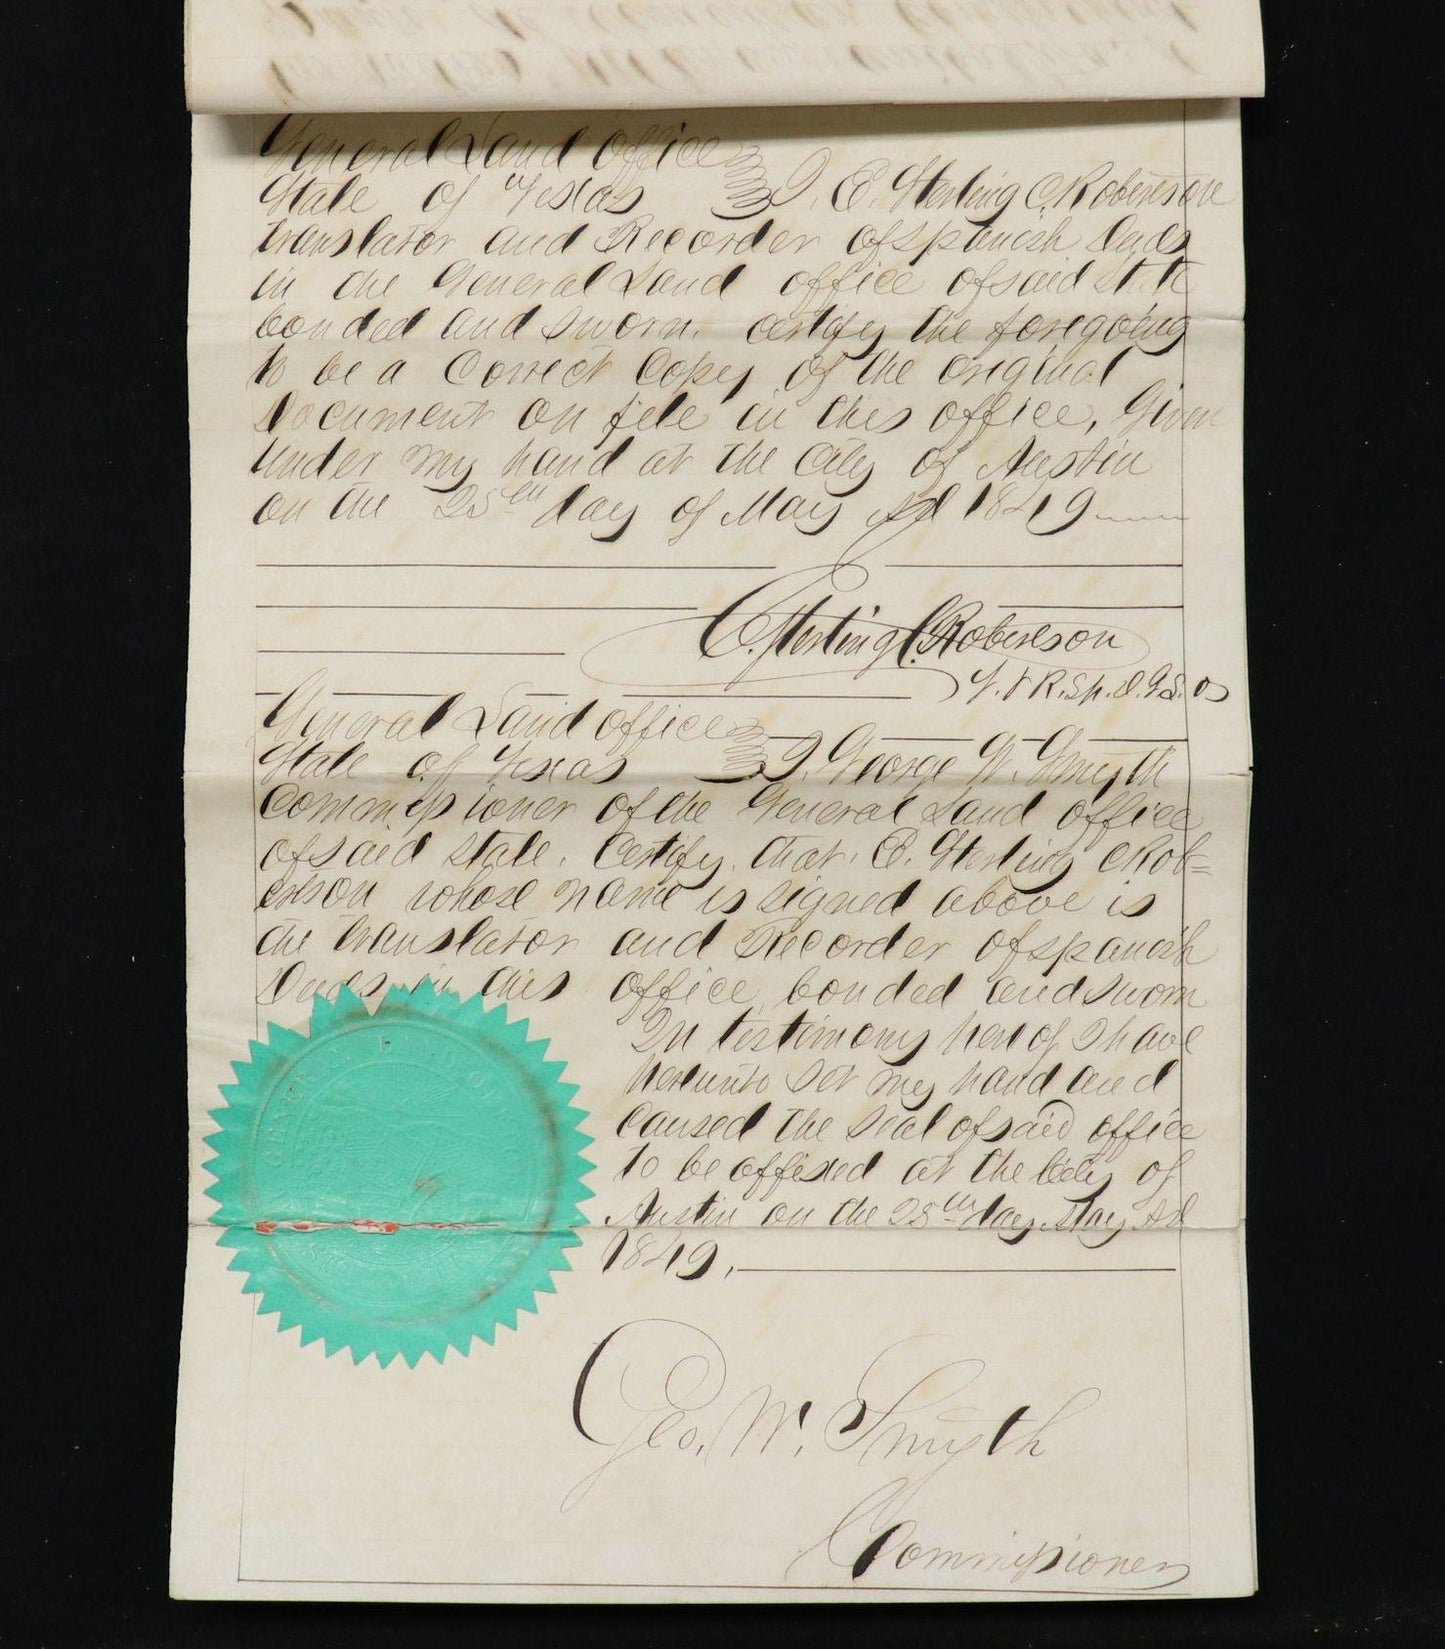 General Land Office
State of Texas I, E. Sterling C. Robertson
translator and Recorder of Spanish Deeds
in the General Land office of said State
bonded and sworn. certify the foregoing
to be a Correct Copy of the Original
Document on file in this office, Given
under my hand at the City of Austin
on the 25th day of May AD 1849
E. Sterling C. Robertson
General Land office
State of Texas I, George W. Smyth
Commissioner of the General Land office
of said State. Certify. that. E. Sterling C Rob=
ertson whose name is signed above is
the translator and Recorder of Spanish
Deeds in this office, bonded and sworn
In testimony hereof I have
hereunto set my hand and
caused the seal of said office
to be affixed at the City of
Austin on the 25th day May AD
1849,
Geo. W. Smyth
Commissioner